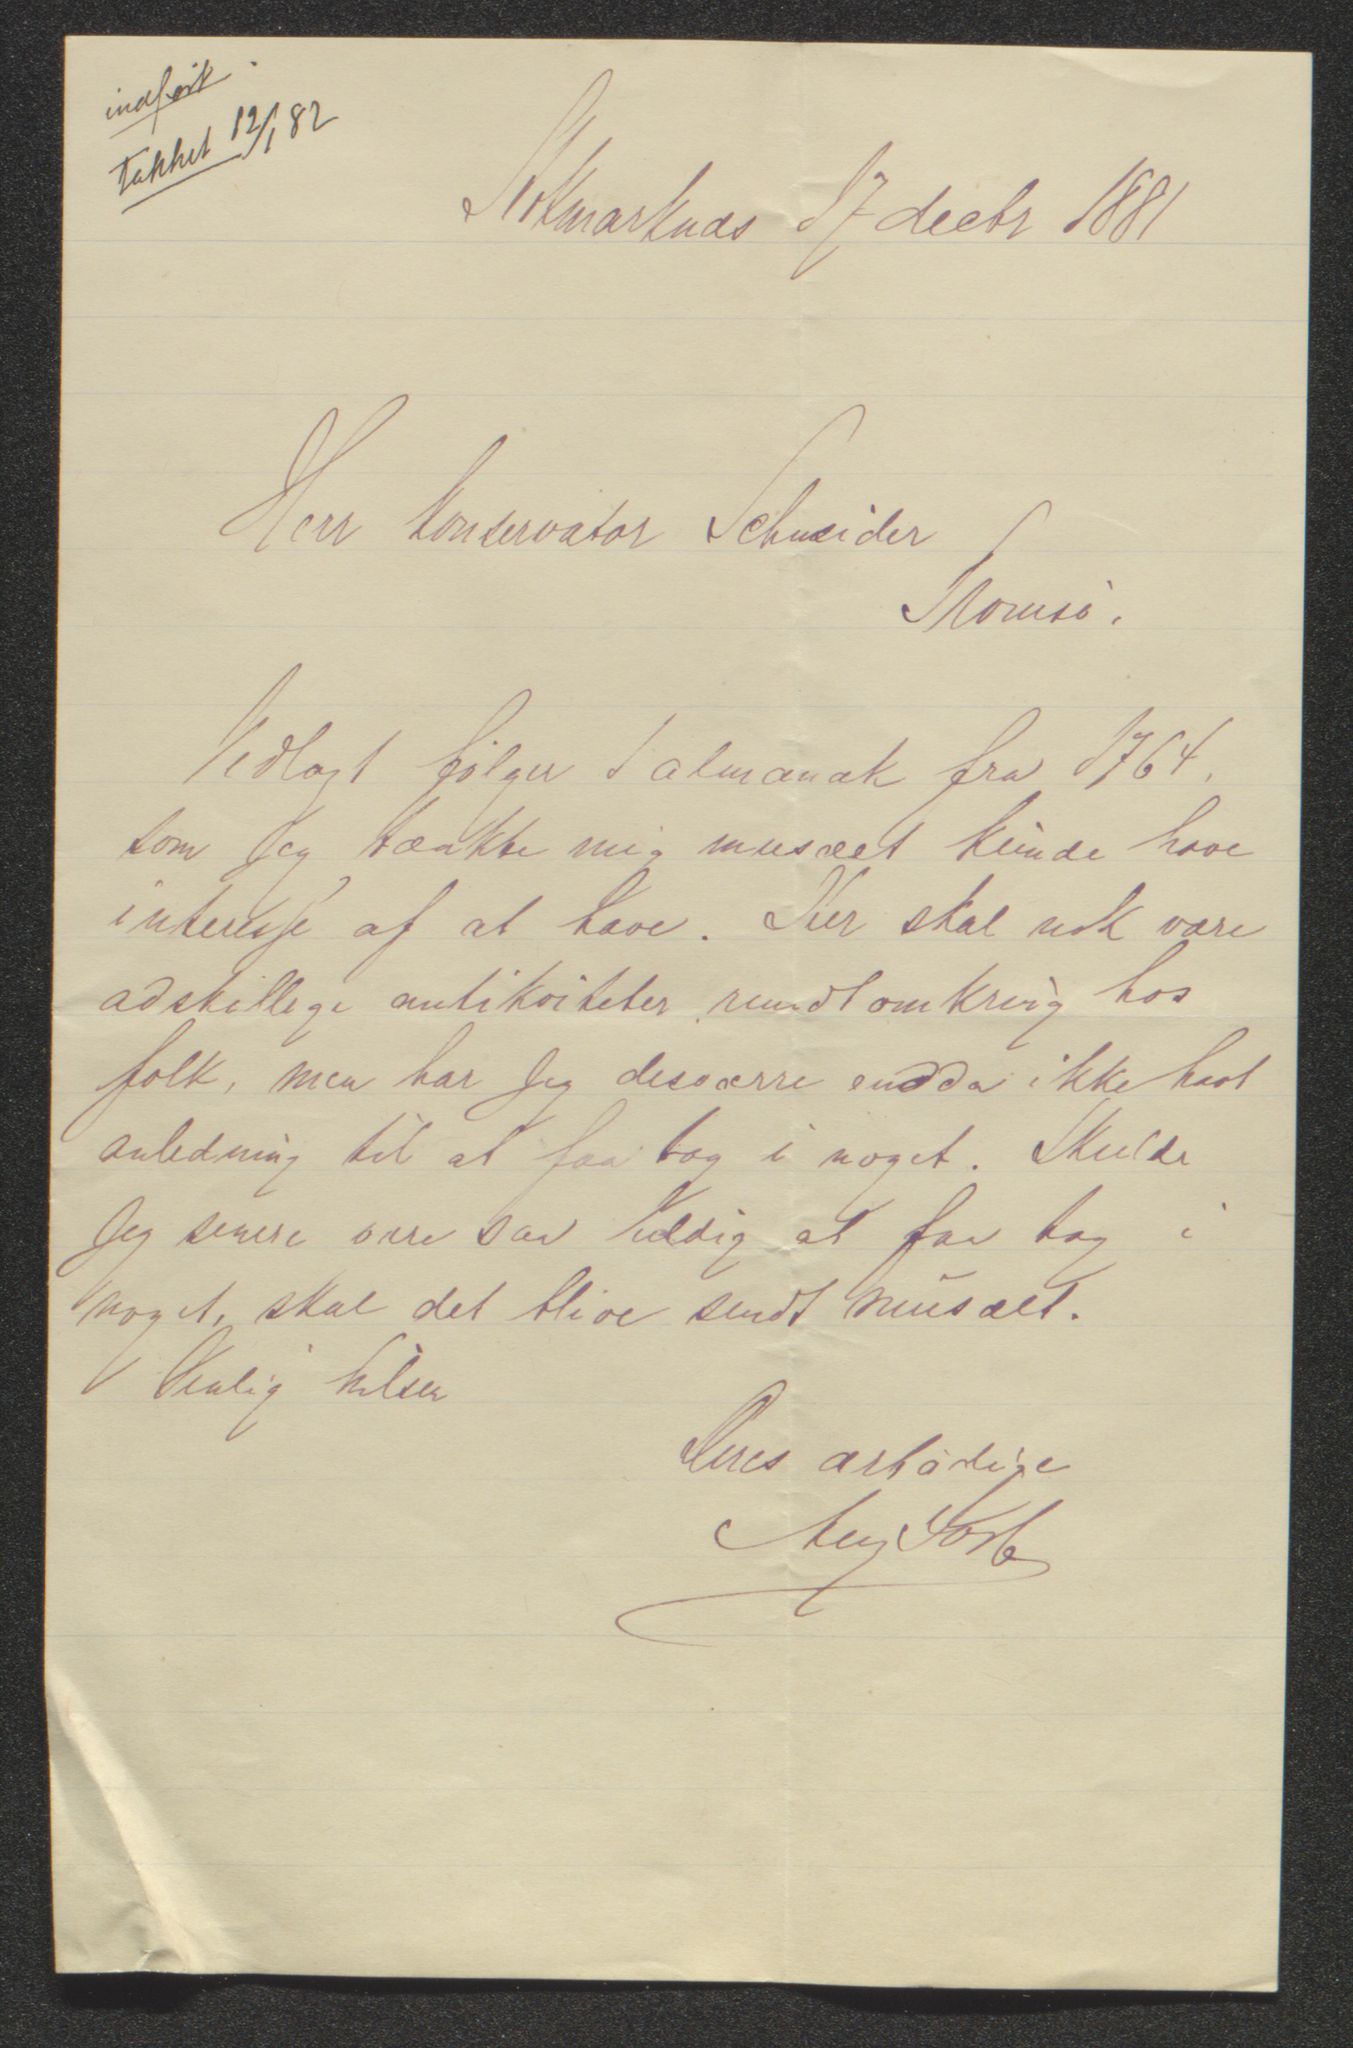 indført.
Takket 12/1 82
Stokmarknæs 17 decbr 1881
Herr konservator Schneider
Tromsø.
Vedlagt følger 1 almanak fra 1764,
som jeg tænkte mig musæet kunde have
interesse af at have. Her skal nok være
adskillige antikviteter rundt omkring hos
folk, men har jeg desværre endda ikke havt
anledning til at faa tag i noget. Skulde
jeg senere være saa heldig at faa tag i
noget, skal det blive sendt musæet.
Venlig hilsen
Deres ærbødige
Aug